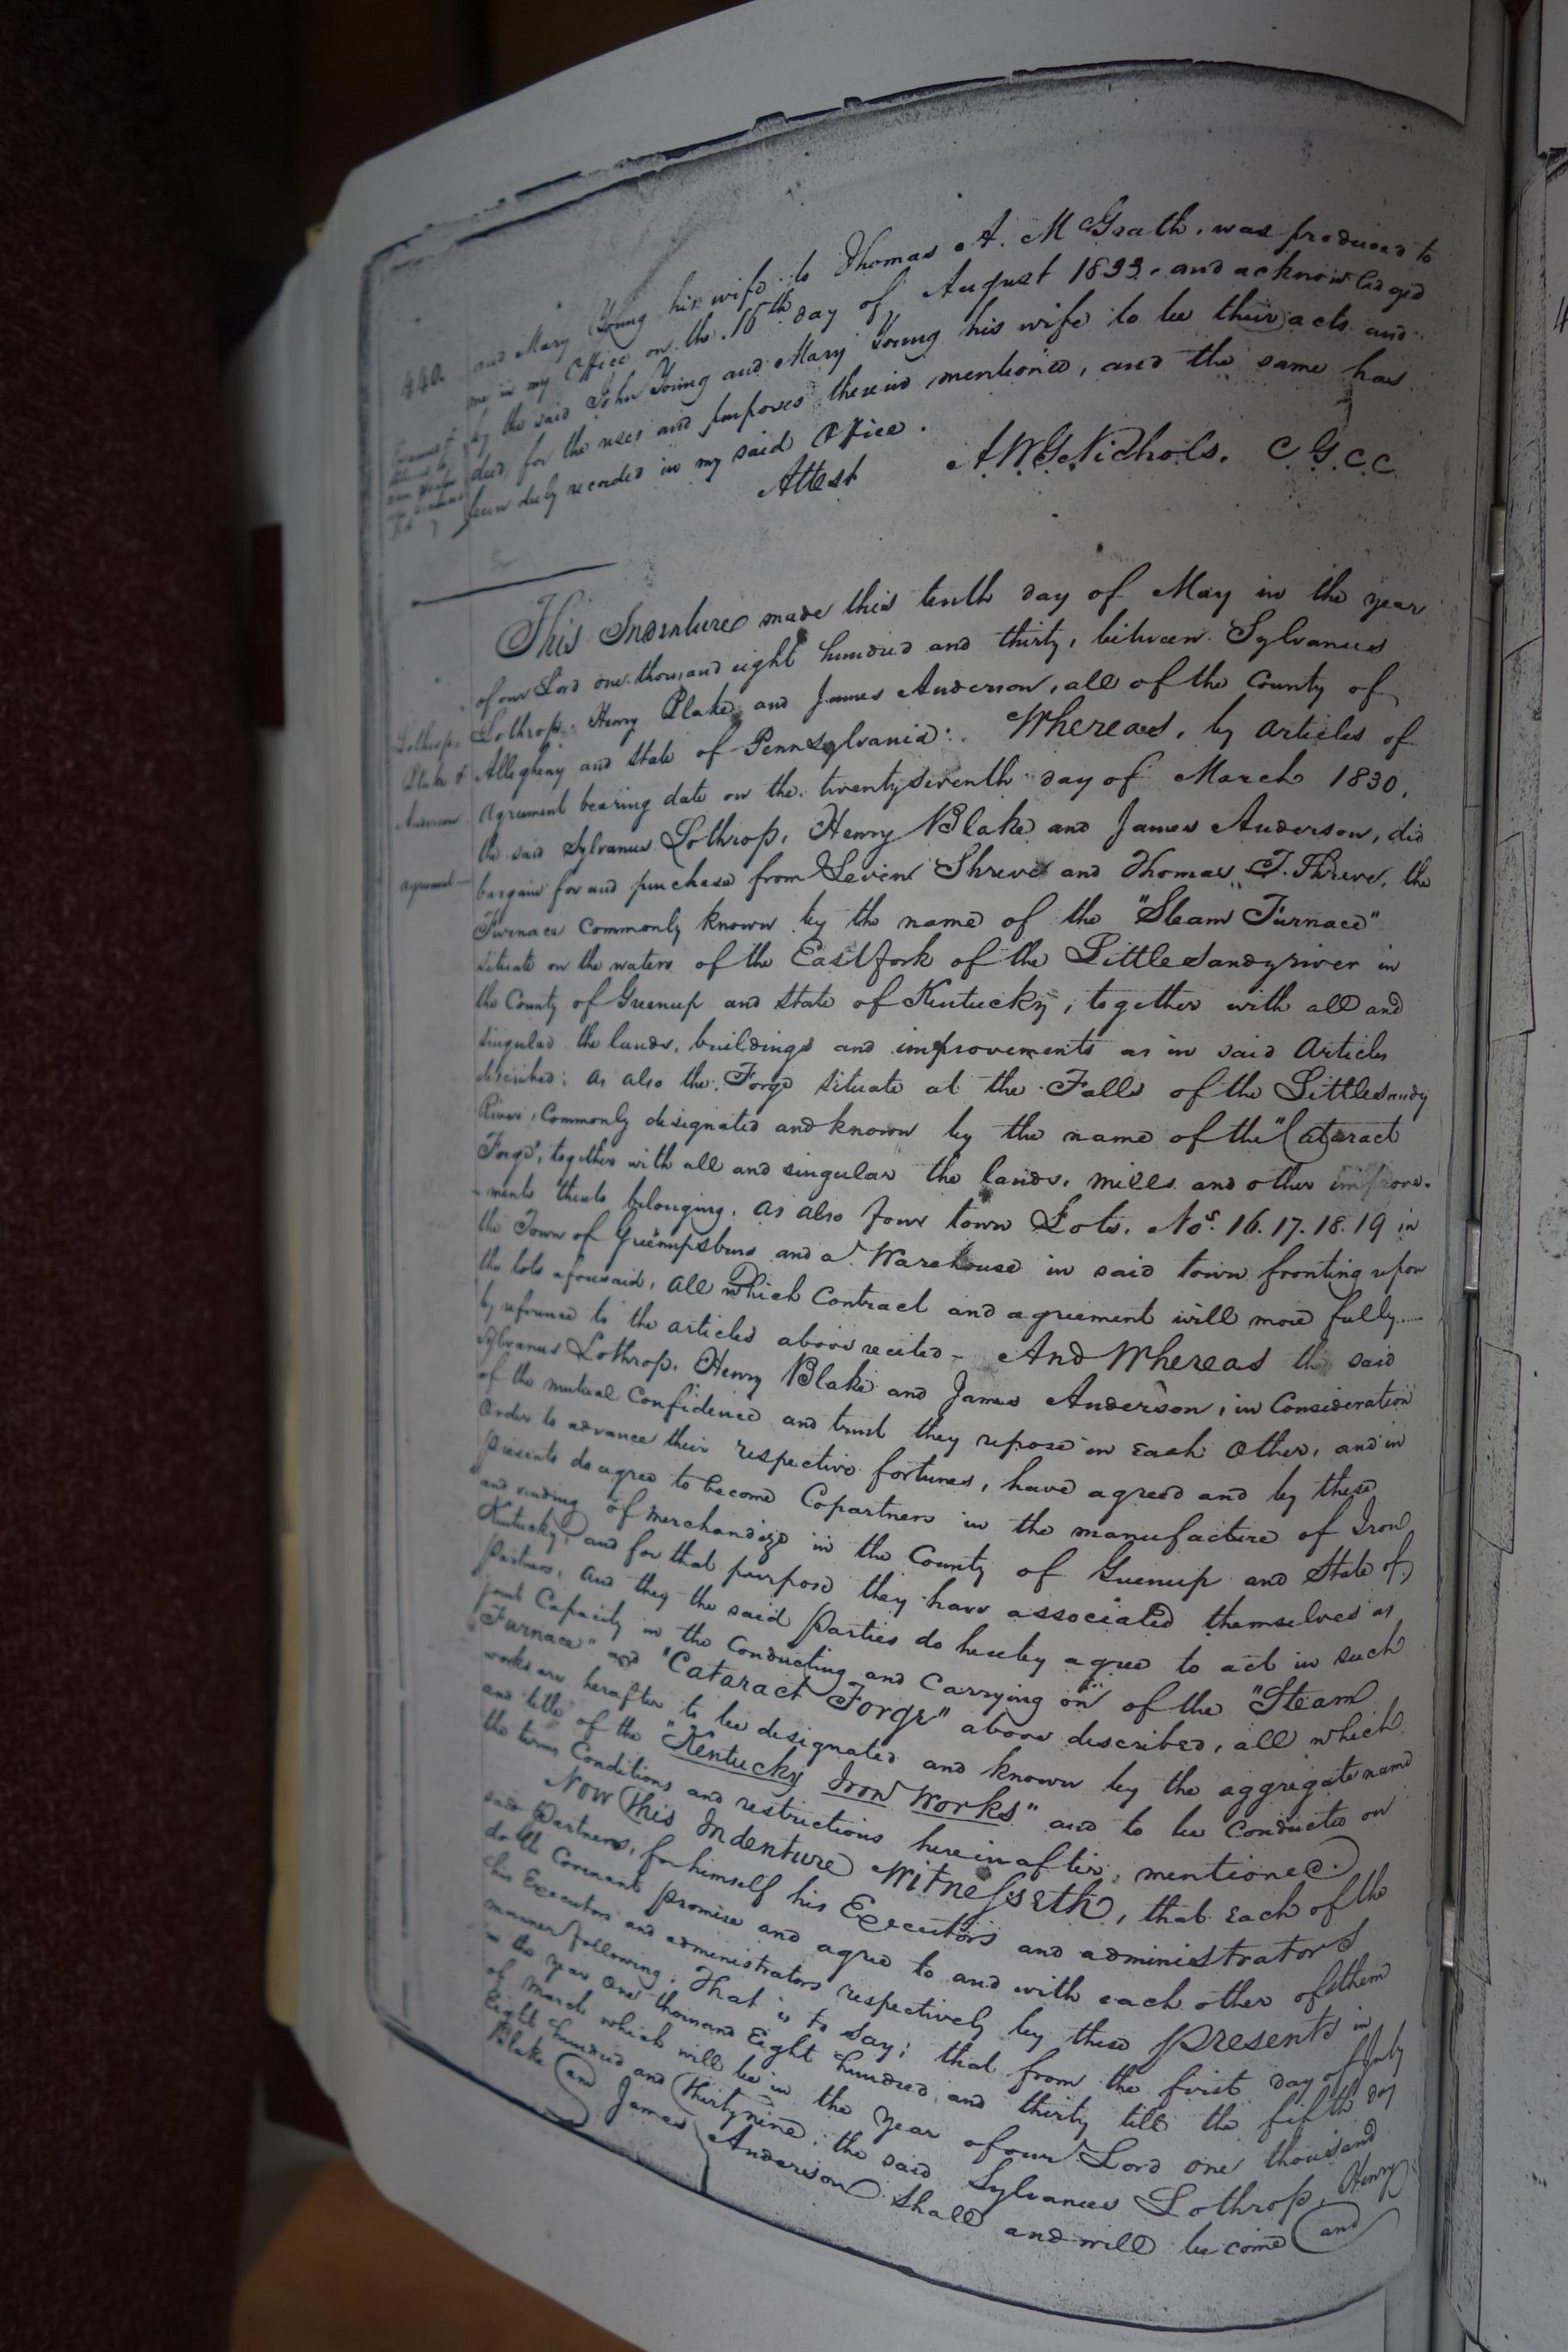 440
and Mary Young his wife to Thomas A. McGrath, was produced to
me in my Office on the 16th day of August 1833. and acknowledged
by the said John Young and Mary Young his wife to be their acts and
deed for the uses and purposes therein mentioned, and the same has
been duly recorded in my said Office.
Attest A.W.G. Nichols. C.G.C.C.
This Indenture made this tenth day of May in the year
of our Lord one thousand eight hundred and thirty, between Sylvanus
Lothrop, Lothrop, Henry Blake and James Anderson, all of the County of
Blake & Allegheny and State of Pennsylvania: Whereas, by articles of
Anderson Agreement bearing date on the twentyseventh day of March 1830,
the said Sylvanus Lothrop, Henry Blake and James Anderson, did
agreement— bargain for and purchase from Levin Shreve and Thomas T. Shreve, the
Furnace commonly known by the name of the "Steam Furnace"
situate on the waters of the East fork of the Little Sandy river in
the County of Greenup and State of Kentucky, together with all and
singular the lands, buildings and improvements as in said Articles
described: as also the Forge situate at the Falls of the Little Sandy
River, Commonly designated and known by the name of the "Cataract
Forge", together with all and singular the lands, mills and other improve-
-ments thereto belonging. as also four town Lots. Nos. 16. 17. 18. 19 in
the Town of Greenupsburg and a Warehouse in said town fronting upon
the lots aforesaid, all which Contract and agreement will more fully
by reference to the articles above recited - And Whereas the said
Sylvanus Lothrop, Henry Blake and James Anderson, in Consideration
of the mutual Confidence and trust they repose in each other, and in
Order to advance their respective fortunes, have agreed and by these
presents do agree to become Copartners in the manufacture of Iron
and vending of merchandize in the County of Greenup and State of
Kentucky, and for that purpose they have associated themselves as
Partners, and they the said Parties do hereby agree to act in such
joint Capacity in the Conducting and Carrying on of the "Steam
Furnace" and "Cataract Forge" above described, all which
works are hereafter to be designated and known by the aggregate name
and title of the "Kentucky Iron Works" and to be Conducted on
the terms Conditions and restrictions hereinafter mentioned.
Now this Indenture Witnesseth, that each of the
said Partners, for himself his Executors and administrators
doth Covenant promise and agree to and with each other of them
his Executors and administrators respectively by these presents in
manner following: That is to say; that from the first day of July
in the year One thousand Eight hundred and thirty till the fifth day
of March which will be in the year of our Lord one thousand
Eight hundred and thirtynine, the said Sylvanus Lothrop, Henry
Blake and James Anderson shall and will become and